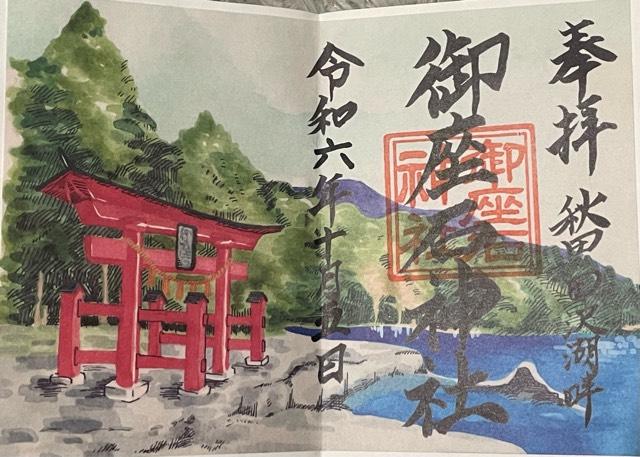 奉拝
秋田 湖畔
御座石神社
御座石
神社
令和六年十月五日